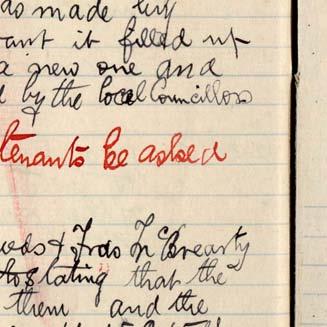 as made by
want it filled up
a new one and
d by the local Councillors
tenants be asked
& Fras Mc Brearty
stating that the
them and the